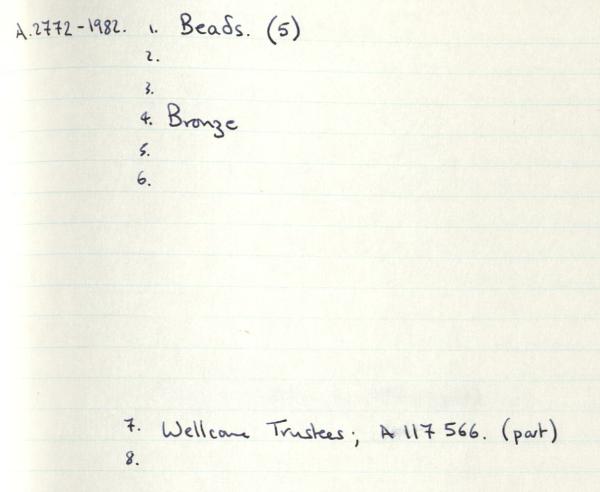 A.2772-1982. 1. Beads. (5)
2.
3.
4. Bronze
5.
6.
7. Wellcome Trustees; A 117 566. (part)
8.